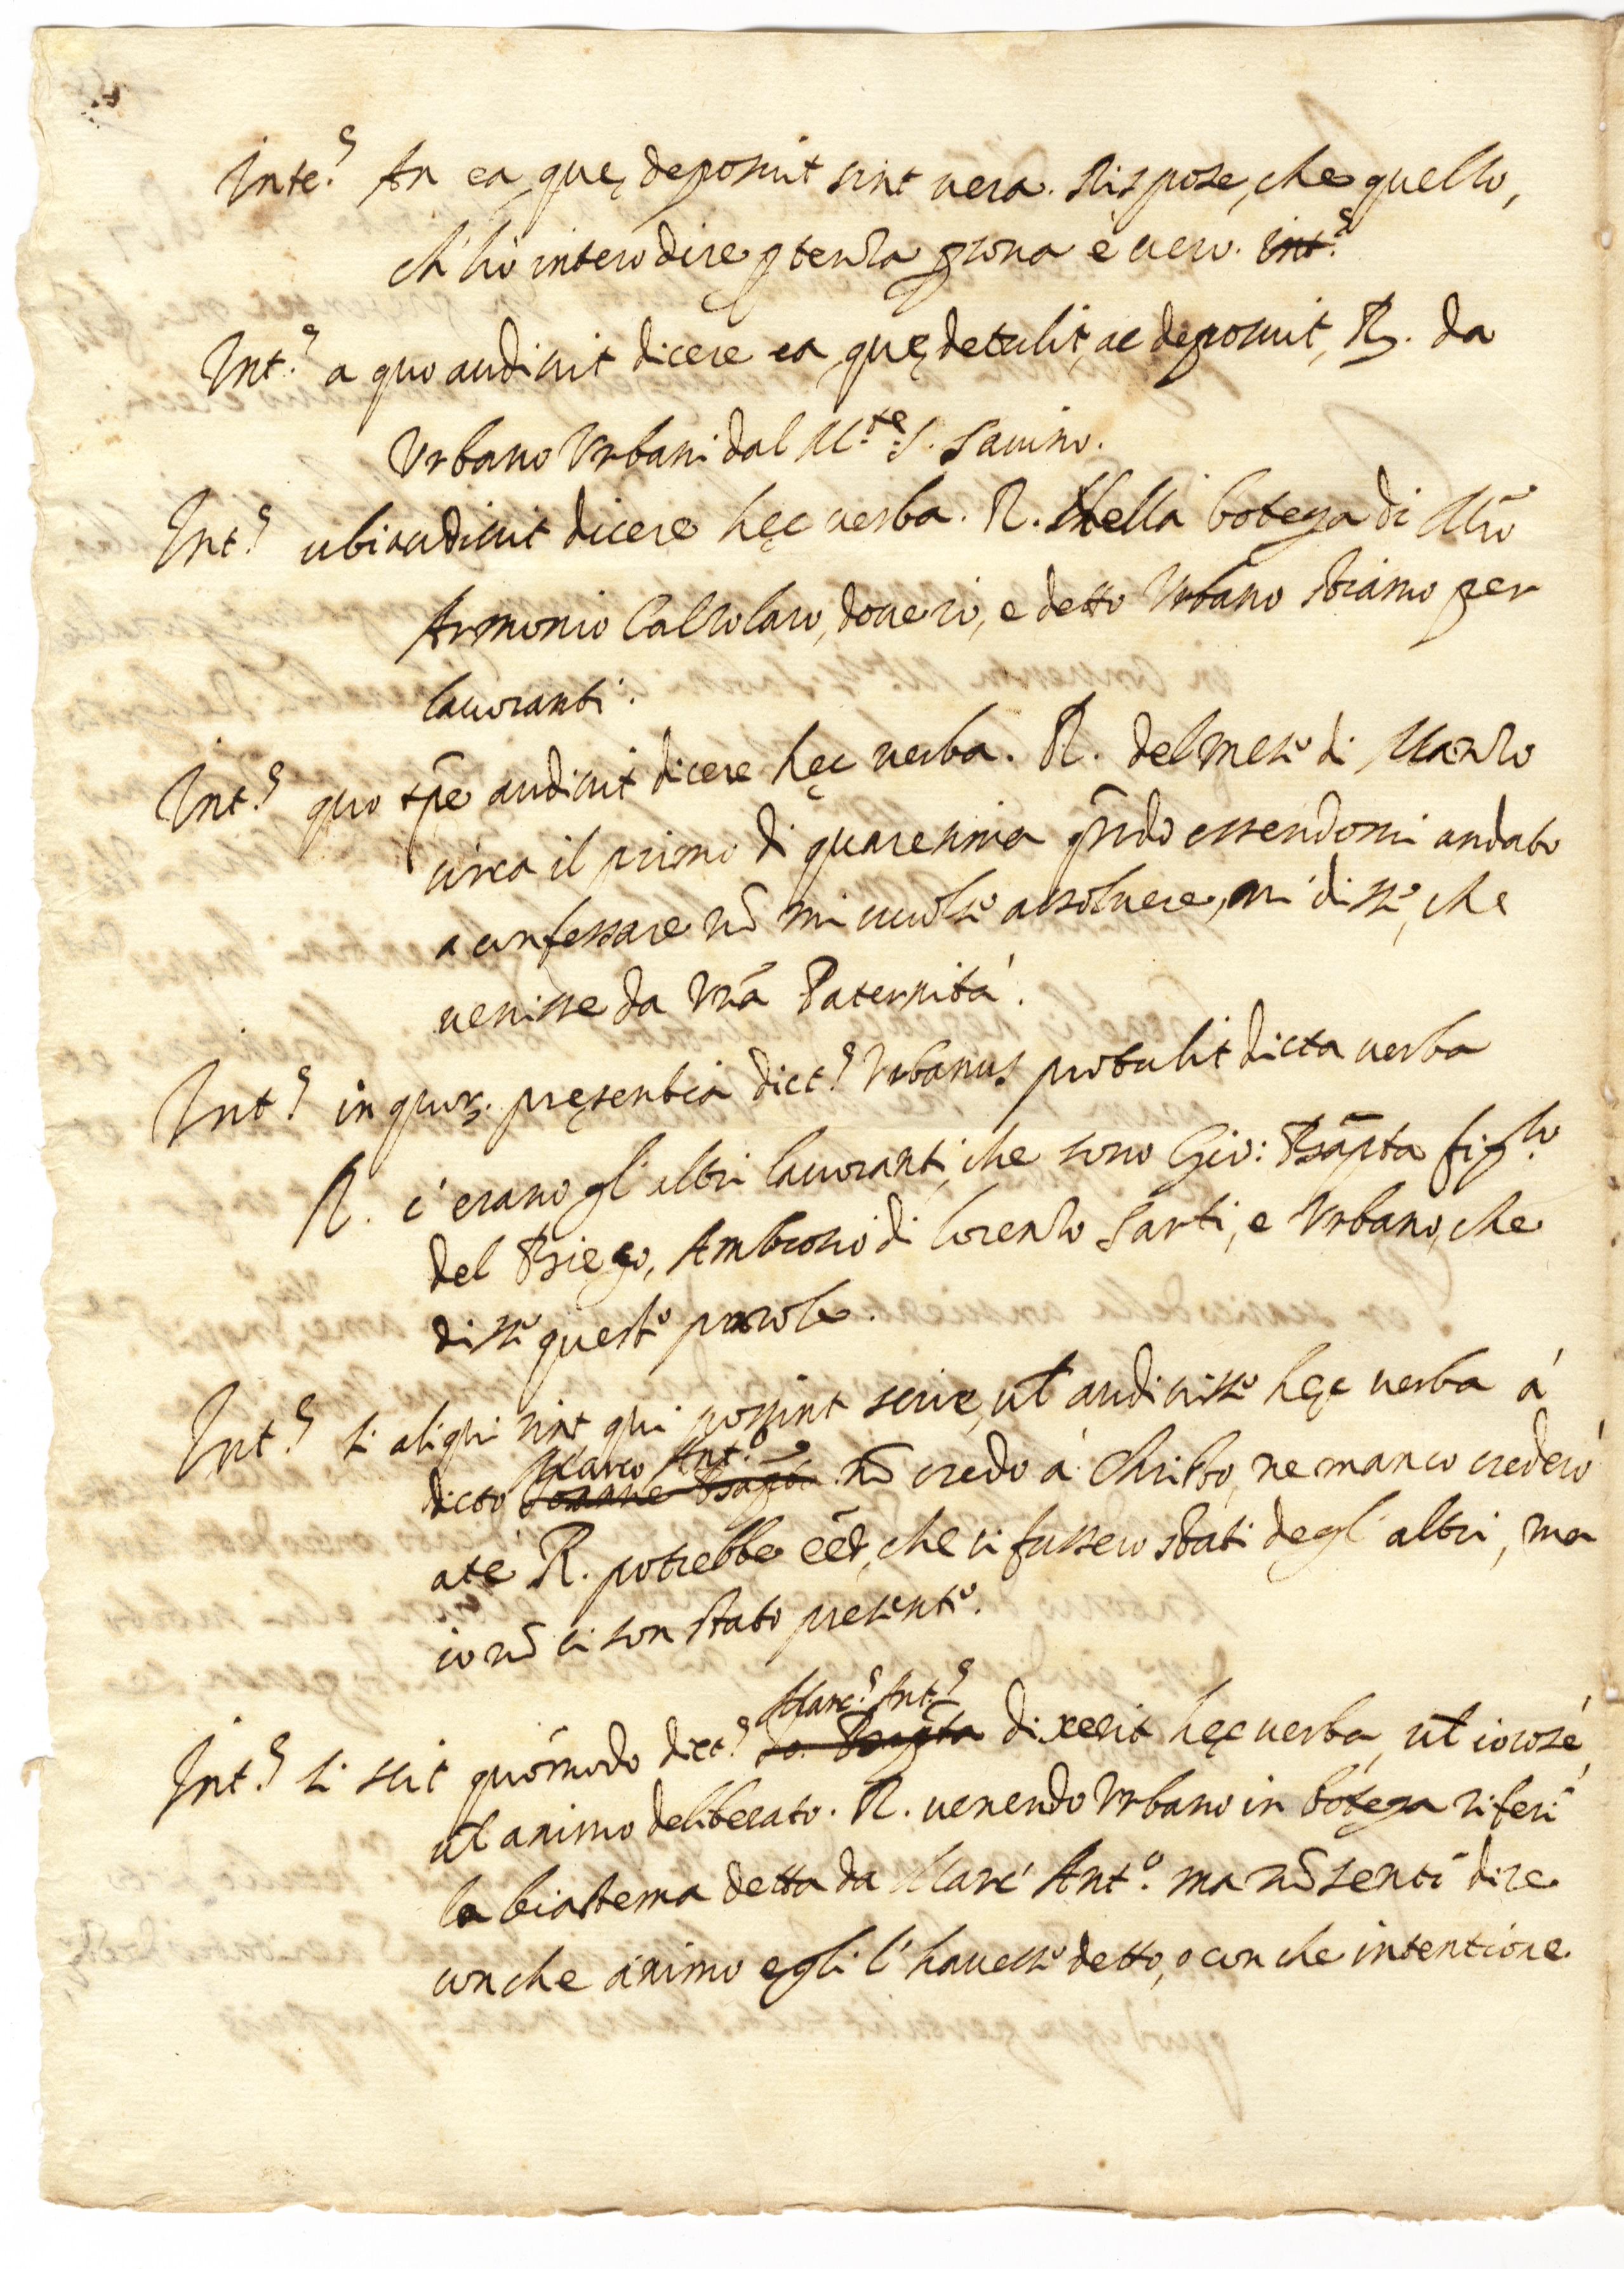 Inte.s An ea quę deposuit sint uera. Rispose, che quello,
ch'hò inteso dire p terza psona è uero. Int.s
Int.s a quo audiuit dicere ea quę detulit, ac deposuit, R. da
Vrbano Vrbani dal M.te S. Sauino.
Int.s ubi audiuit dicere hęc uerba. R. Nella botega di Mrõ
Armonio Calzolaro, doue io, e detto Vrbano stiamo per
lauoranti.
Int.s quo tpe audiuit dicere hęc uerba. R. del mese di Marzo
circa il primo di quaresima qñdo essendomi andato
a confessare nõ mi uuolse assoluere, mi disse, che
uenisse da Vrã Paternità.
Int.s in quor. pręsentia dict.s Vrbanus protulit dicta uerba
R. c'erano gl'altri lauoranti, che sono Gio: Bapta figlo
del Priego, Ambrosio di Lorenzo Sarti, e Vrbano, che
disse queste parole.
Int.s si aliqui sint qui possint scire, ut audiuisse hęc uerba à
Marco Ant.o
dicto Ioanne Bapta nõ credo à Christo, ne manco crederò
à te R. potrebbe eẽr, che ci fussero stati degl'altri, ma
io nõ ci son stato presente.
Marc.s Ant.s
Int.s si scit quomodo dict.s Io. Bapta dixerit hęc uerba, ut iocosè,
ut animo deliberato. R. uenendo Vrbano in botega riferì
la biastema detta da Marc' Ant.o ma nõ sentì dire
con che animo egli l'hauesse detto, o con che intentione